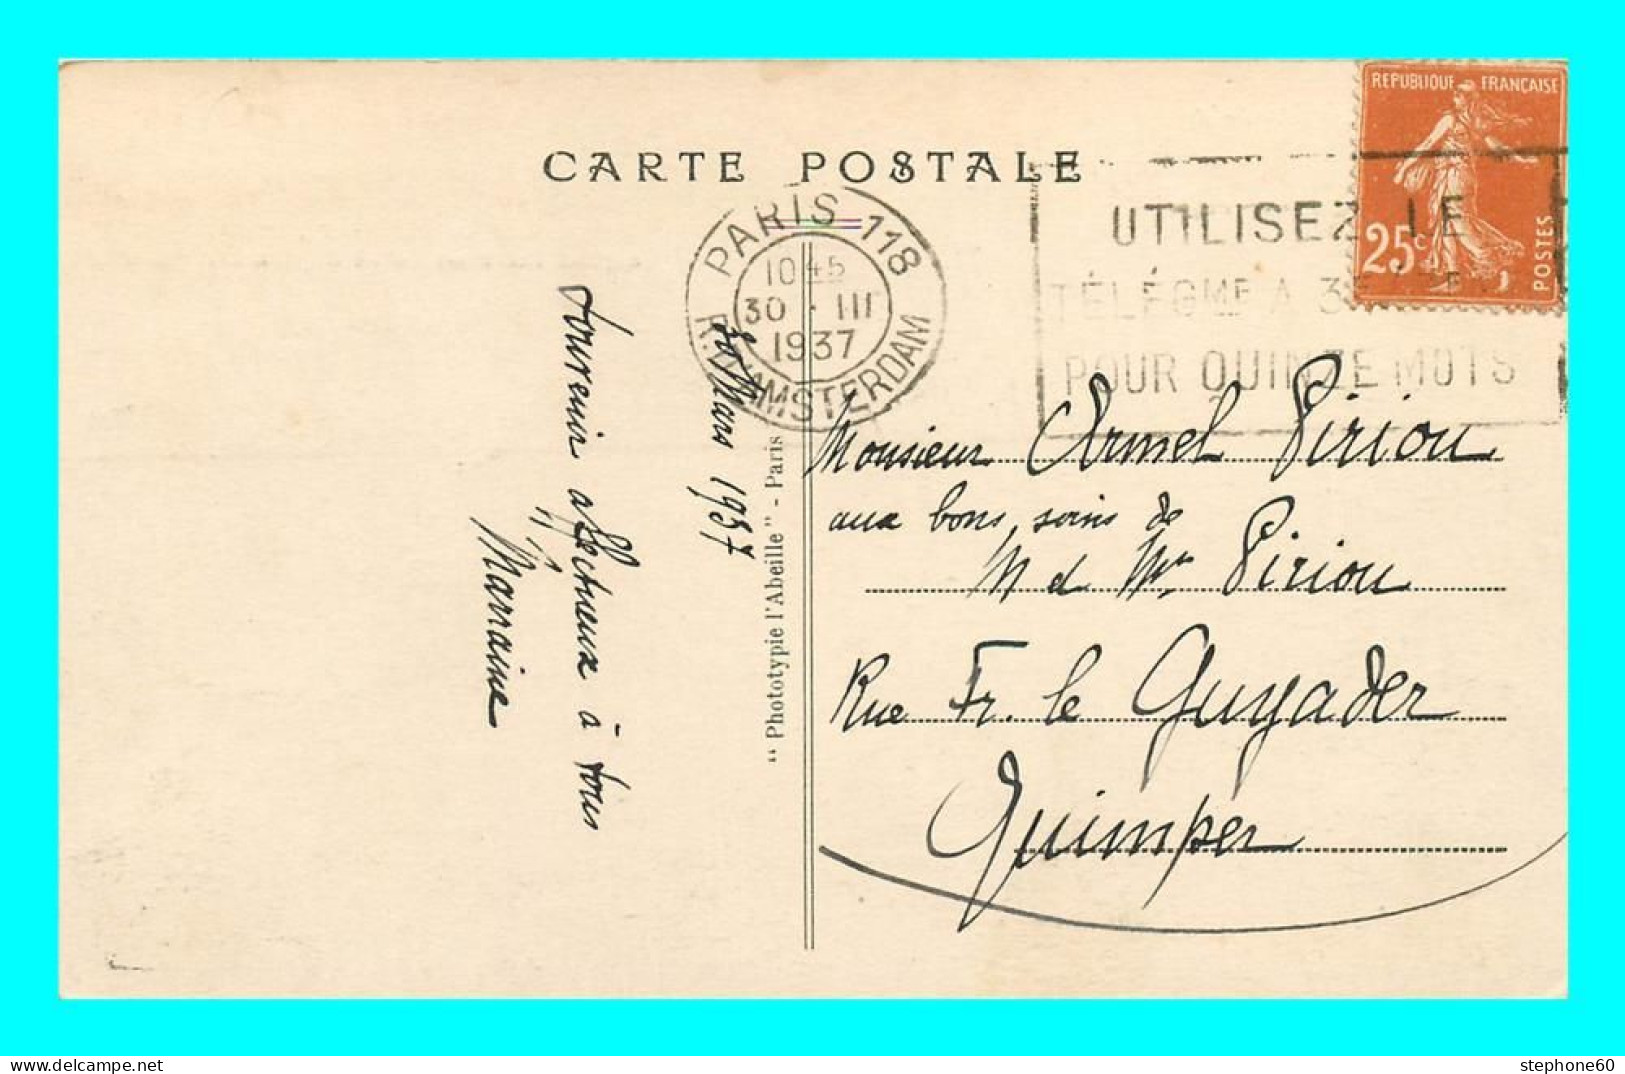 CARTE POSTALE
REPUBLIQUE FRANÇAISE
25c
POSTES
PARIS 118
10 45
30 - III
1937
R. D'AMSTERDAM
UTILISEZ LE
TÉLÉGME A 3
POUR QUINZE MOTS
30 Mars 1937
Souvenir affectueux à tous
Marraine
"Phototypie l'Abeille" - Paris
Monsieur Armel Piriou
aux bons soins de
M et Me Piriou
Rue Fr. le Guyader
Quimper
stephone60